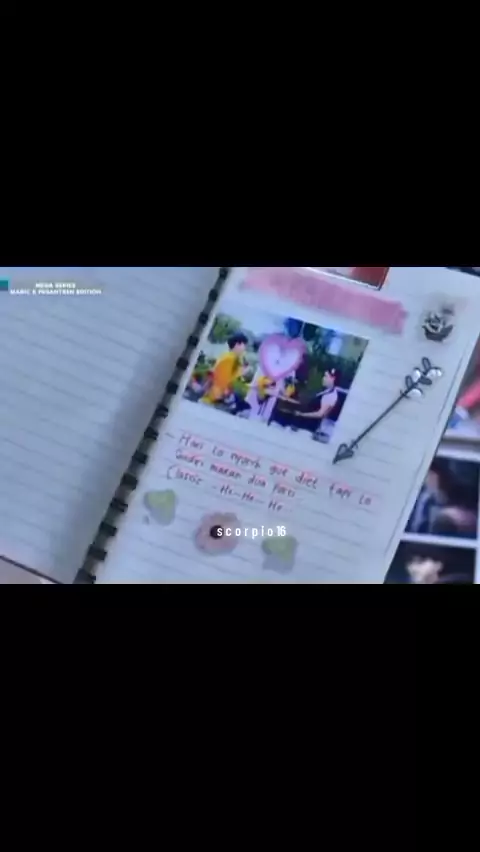 MEGA SERIES
MAGIC 5 PESANTREN EDITION
- Hari Lo nyoruh gue diet tapi Lo
Sndri makan dua porsi
Classic - He - He - He
scorpio16